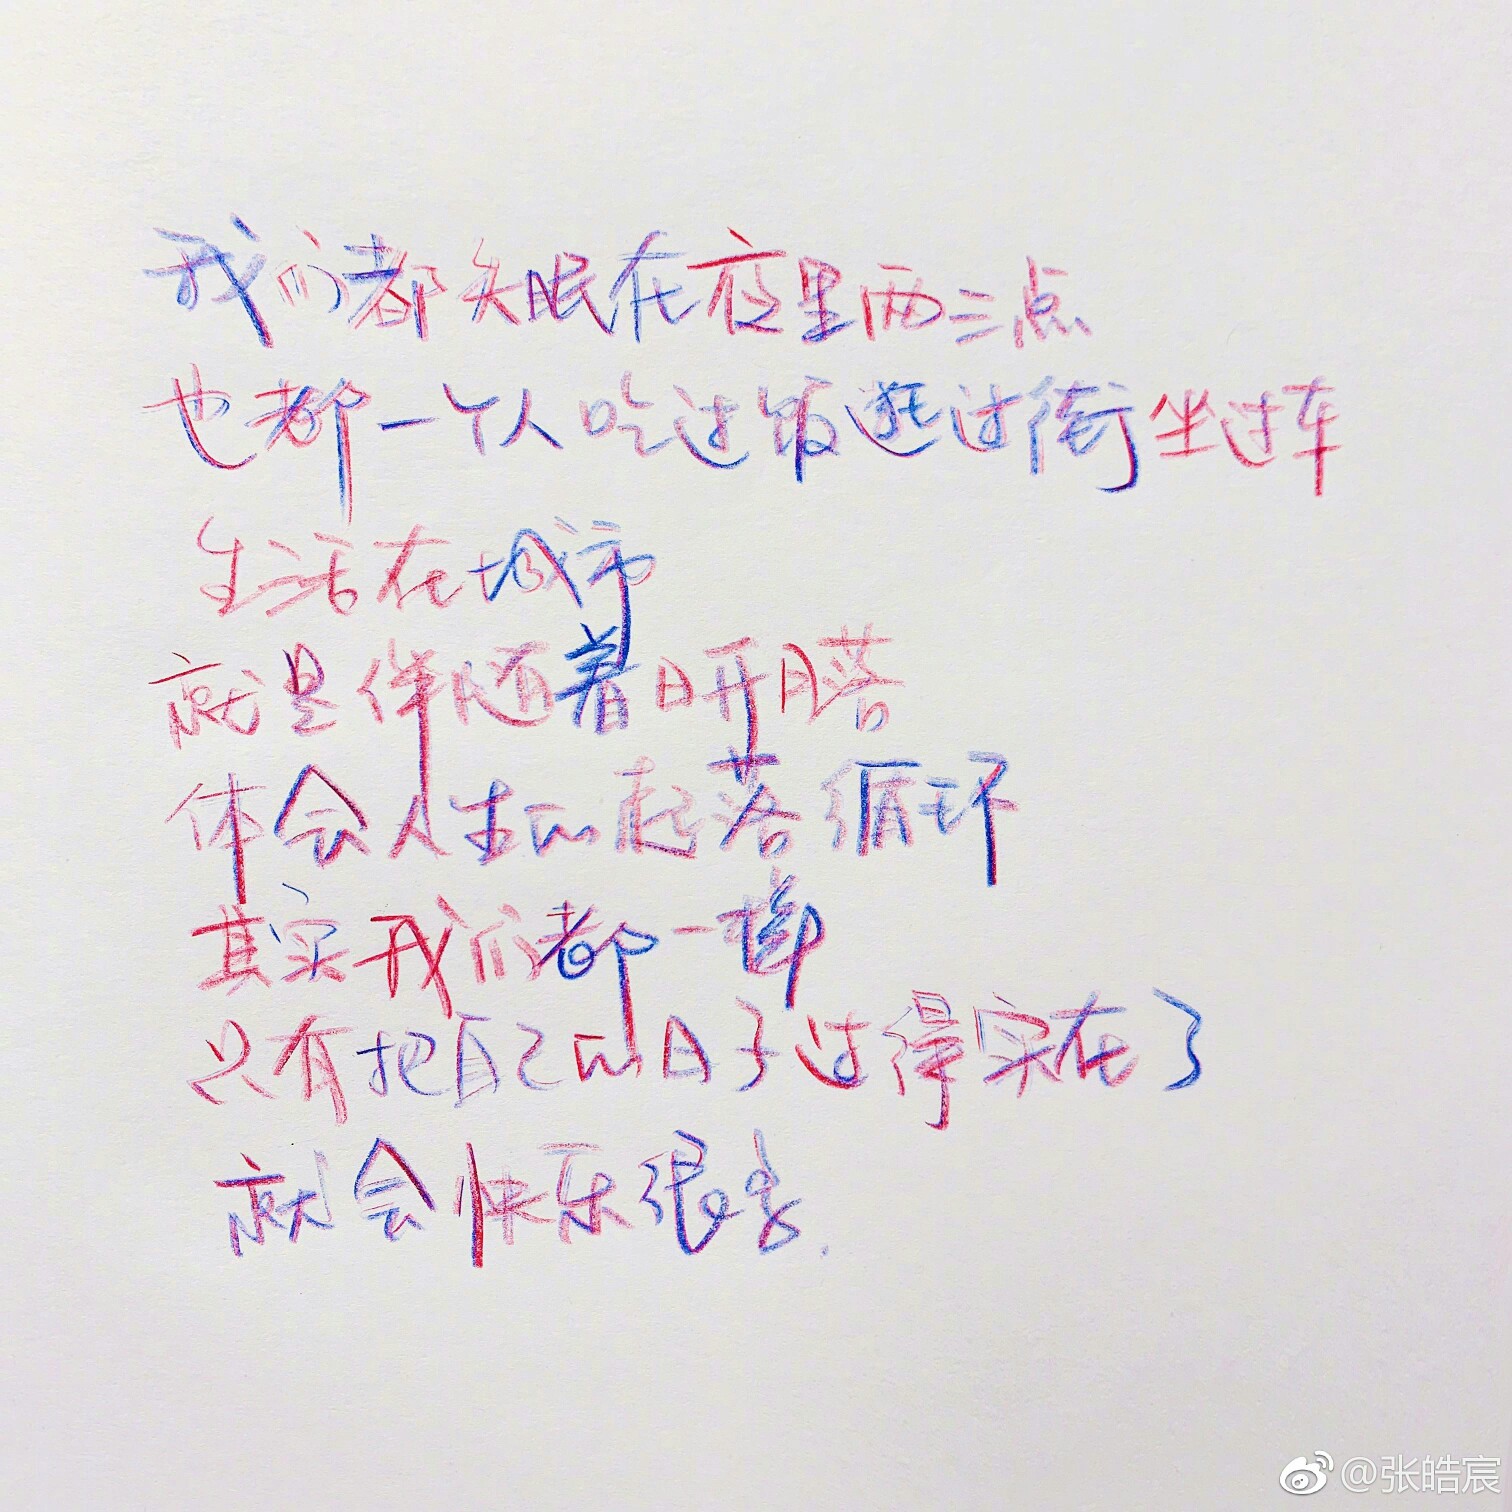 我们都失眠在夜里两三点
也都一个人吃过饭逛过街坐过车
生活在城市
就是伴随着日开月落
体会人生的起落循环
其实我们都一样
只有把自己的日子过得实在了
就会快乐很多.
@张皓宸